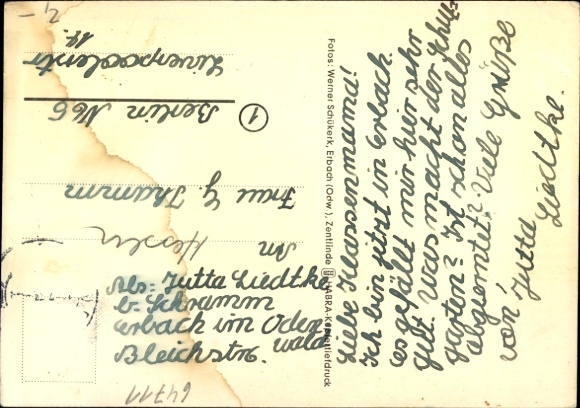 Liebe Klassenmama!
Ich bin jetzt in Erbach.
Es gefällt mir hier sehr
gut. Was macht der Schul-
garten? Ist schon alles
abgeerntet? Viele Grüße
von Jutta
Liedtke.
Fotos: Werner Schükerk, Erbach (Odw.), Zentlinde HABRA-Kupfertiefdruck
Abs: Jutta Liedtke
b. Schramm
Erbach im Oden
wald
Bleichstr.
An
Frau G. Thamm
Berlin N65
1
Liverpoolerstr
17.
Hessen
64711